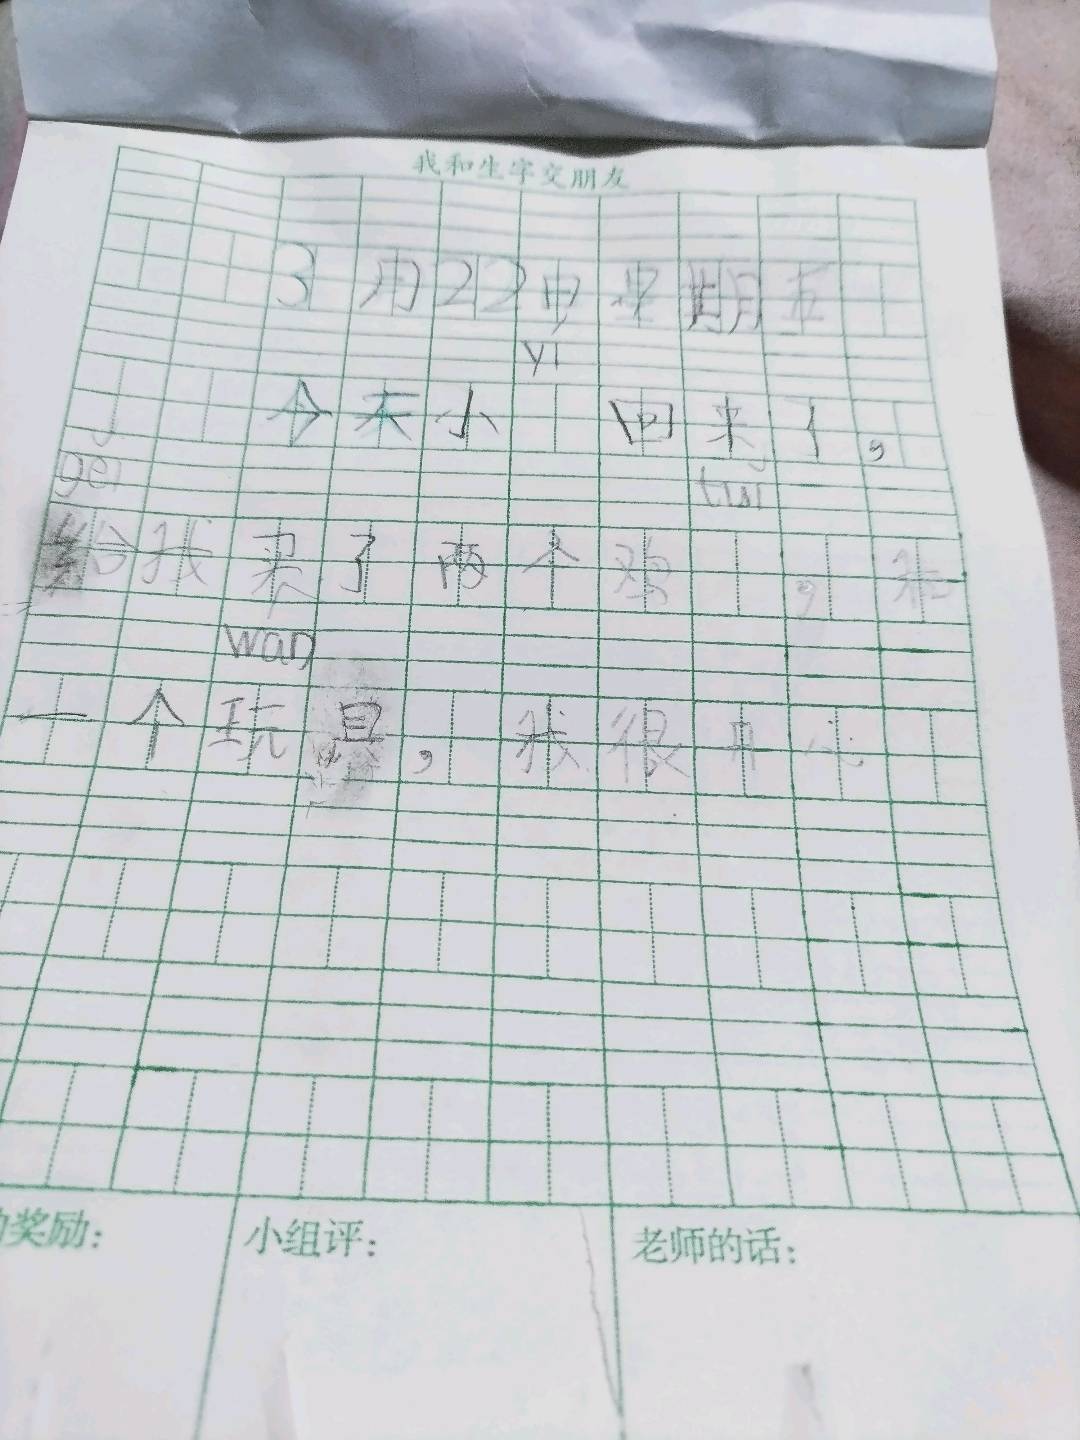 我和生字交朋友
3月22日 星期五
yí
今天小 回来了，
gei tuǐ
给我买了两个鸡 ，和
wan
一个玩具，我很开心
的奖励：
小组评：
老师的话：